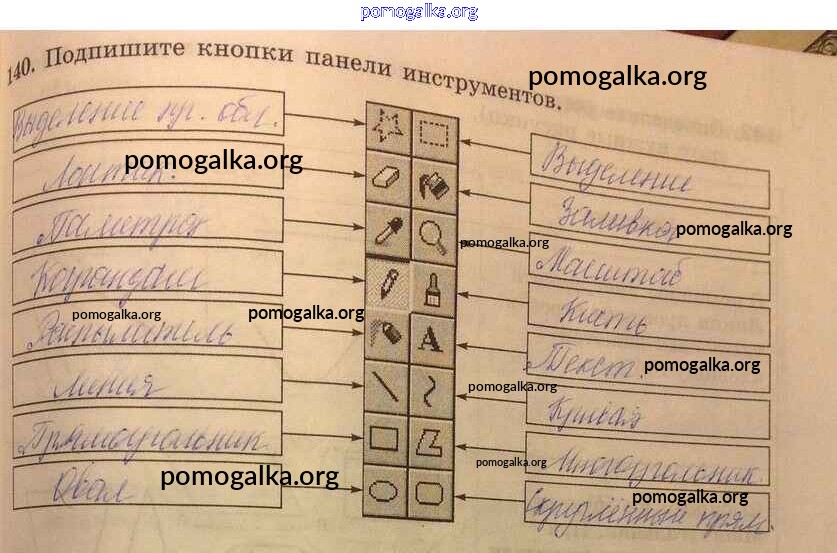 pomogalka.org
140. Подпишите кнопки панели инструментов.
pomogalka.org
Выделение пр. обл.
Выделение
pomogalka.org
Ластик.
Заливка
pomogalka.org
Палитра
pomogalka.org
Масштаб
Карандаш
Кисть
pomogalka.org
pomogalka.org
Распылитель
A
Текст.
pomogalka.org
Линия
pomogalka.org
Кривая
Прямоугольник
pomogalka.org
Многоугольник
Овал
pomogalka.org
pomogalka.org
Скруглённый прям.